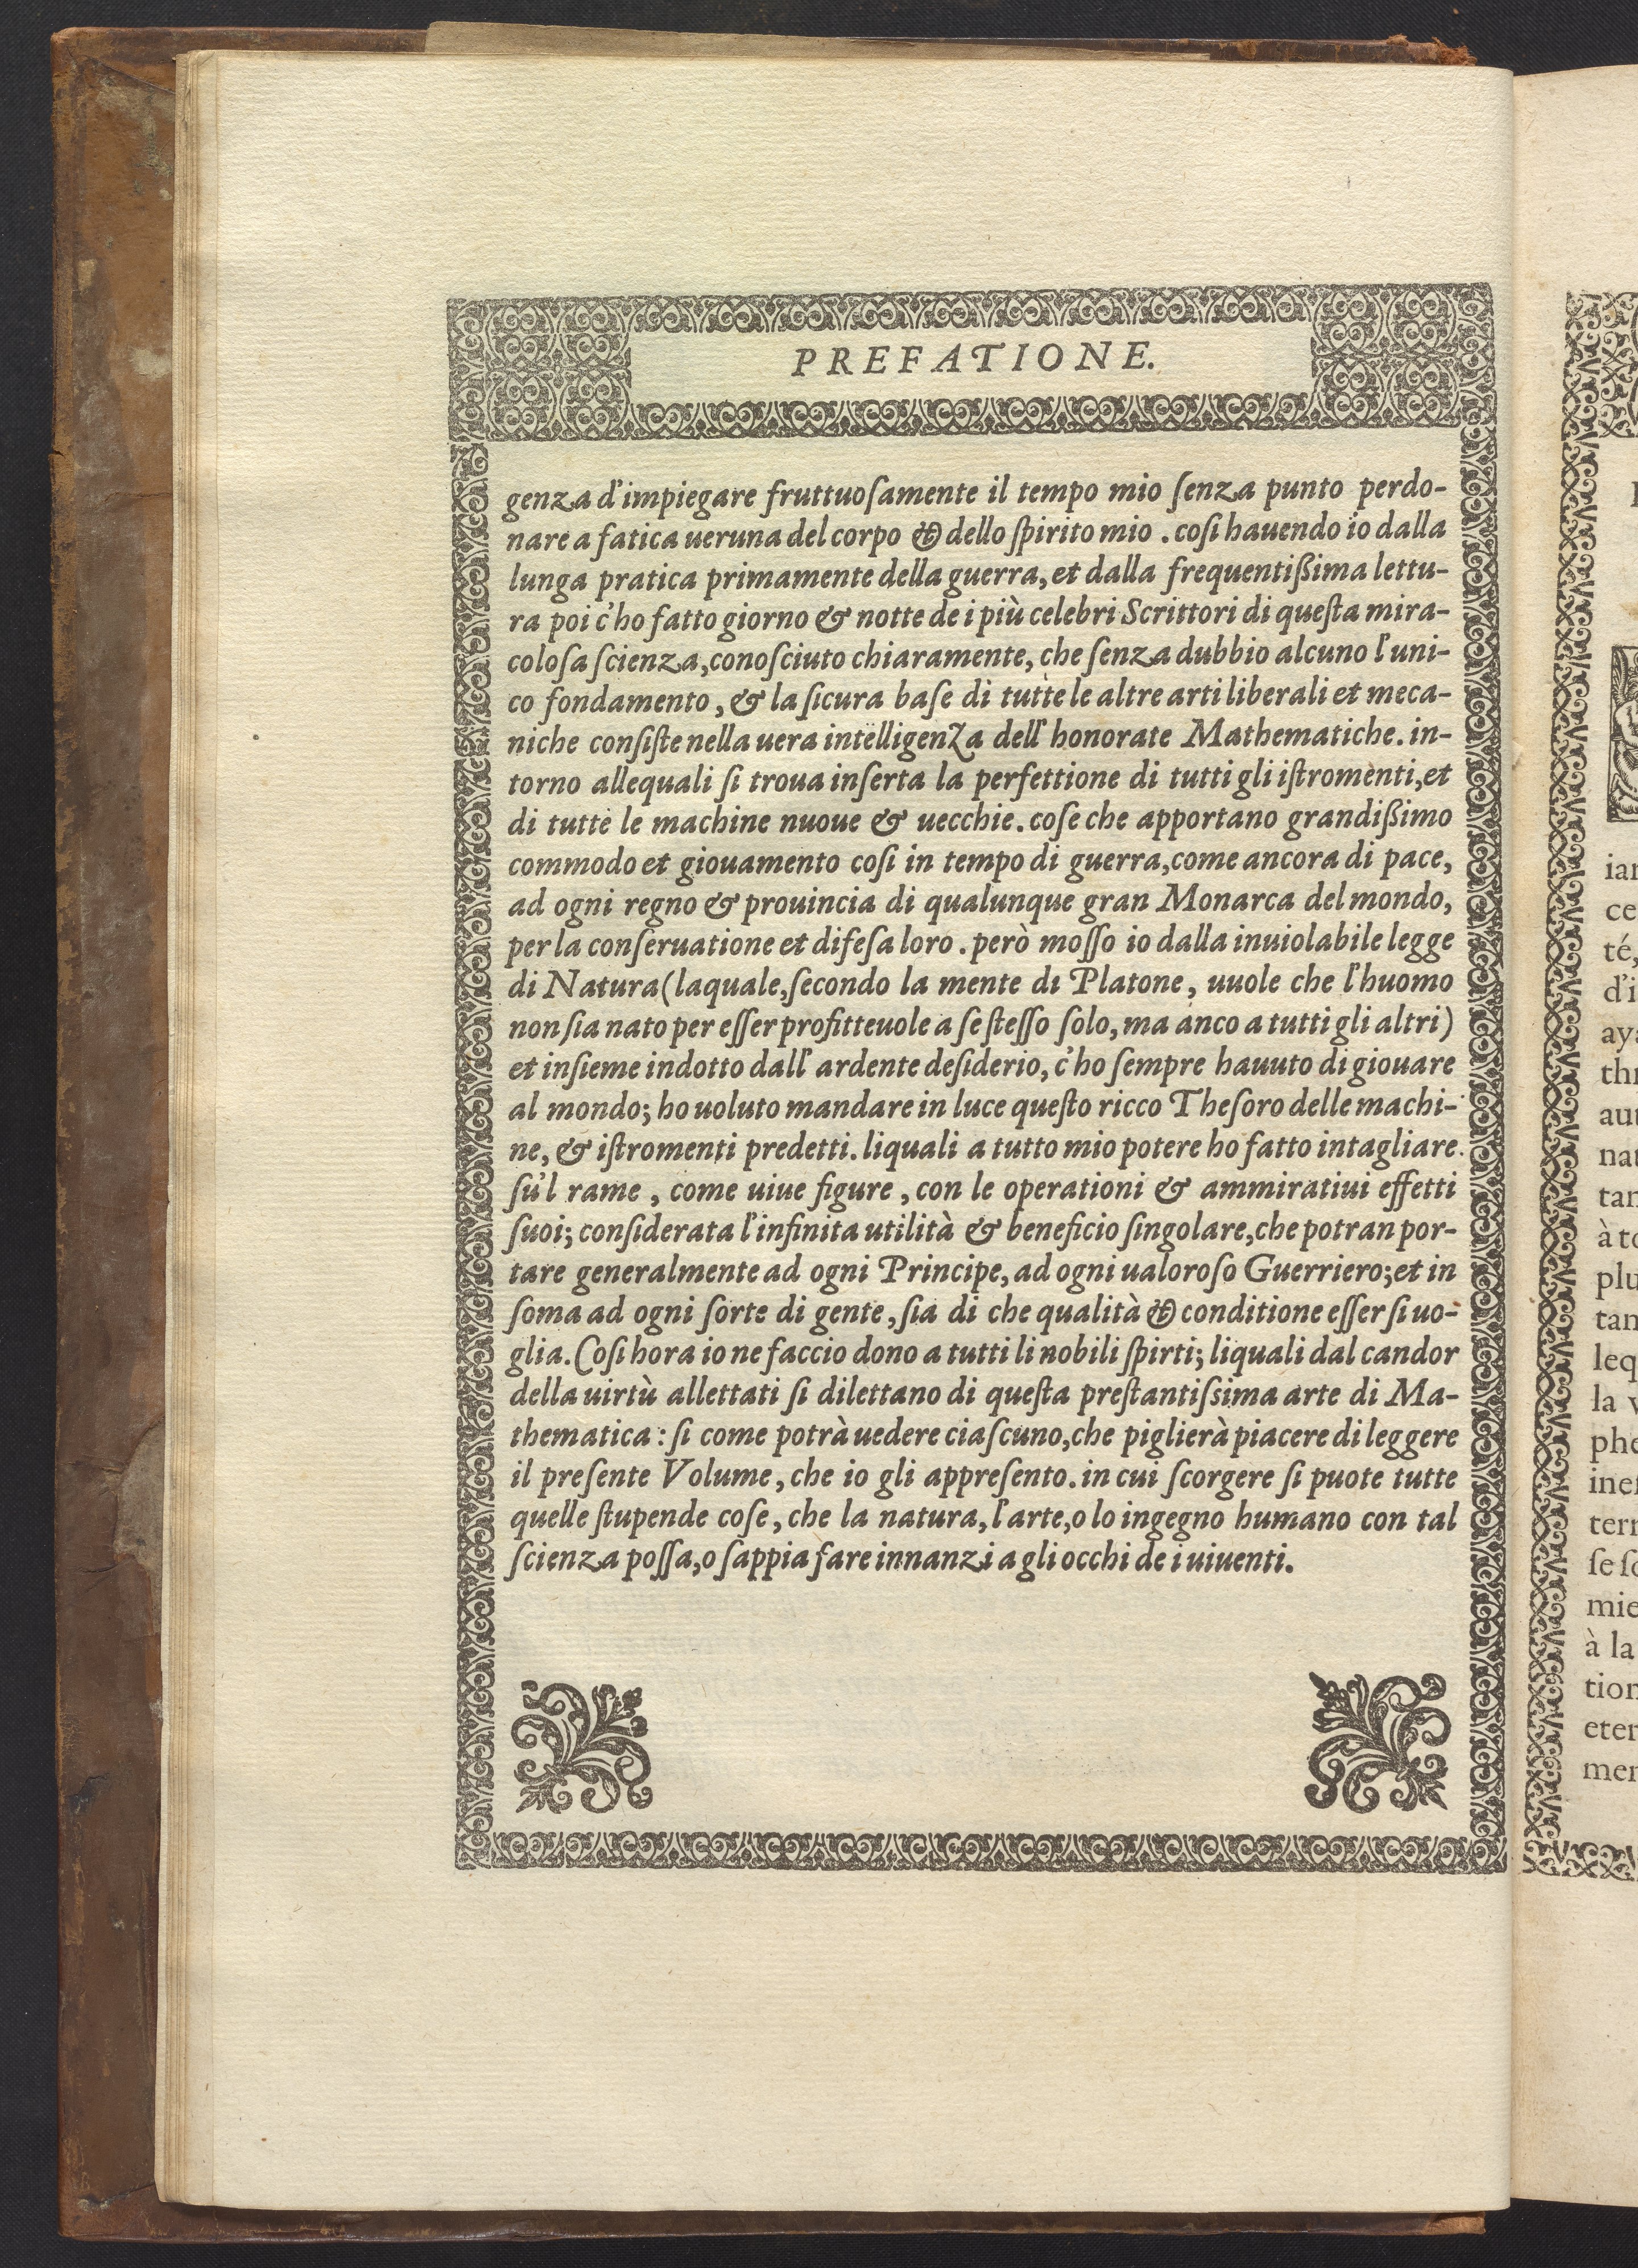 PREFATIONE.
genza d'impiegare fruttuoſamente il tempo mio ſenza punto perdo-
nare a fatica ueruna del corpo & dello ſpirito mio . coſi hauendo io dalla
lunga pratica primamente della guerra, et dalla frequentißima lettu-
ra poi c'ho fatto giorno & notte de i più celebri Scrittori di queſta mira-
coloſa ſcienza, conoſciuto chiaramente, che ſenza dubbio alcuno l'uni-
co fondamento, & la ſicura baſe di tutte le altre arti liberali et meca-
niche conſiſte nella uera intelligenza dell' honorate Mathematiche. in-
torno allequali ſi troua inſerta la perfettione di tutti gli iſtromenti, et
di tutte le machine nuoue & uecchie. coſe che apportano grandißimo
commodo et giouamento coſi in tempo di guerra, come ancora di pace,
ad ogni regno & prouincia di qualunque gran Monarca del mondo,
per la conſeruatione et difeſa loro . però moſſo io dalla inuiolabile legge
di Natura (laquale, ſecondo la mente di Platone, uuole che l'huomo
non ſia nato per eſſer profitteuole a ſe ſteſſo ſolo, ma anco a tutti gli altri)
et inſieme indotto dall' ardente deſiderio, c'ho ſempre hauuto di giouare
al mondo; ho uoluto mandare in luce queſto ricco Theſoro delle machi-
ne, & iſtromenti predetti. liquali a tutto mio potere ho fatto intagliare
ſu'l rame, come uiue figure, con le operationi & ammiratiui effetti
ſuoi; conſiderata l'infinita utilità & beneficio ſingolare, che potran por-
tare generalmente ad ogni Principe, ad ogni ualoroſo Guerriero; et in
ſoma ad ogni ſorte di gente, ſia di che qualità & conditione eſſer ſi uo-
glia. Coſi hora io ne faccio dono a tutti li nobili ſpirti; liquali dal candor
della uirtù allettati ſi dilettano di queſta preſtantiſsima arte di Ma-
thematica : ſi come potrà uedere ciaſcuno, che piglierà piacere di leggere
il preſente Volume, che io gli appreſento. in cui ſcorgere ſi puote tutte
quelle ſtupende coſe, che la natura, l'arte, o lo ingegno humano con tal
ſcienza poſſa, o ſappia fare innanzi a gli occhi de i uiuenti.